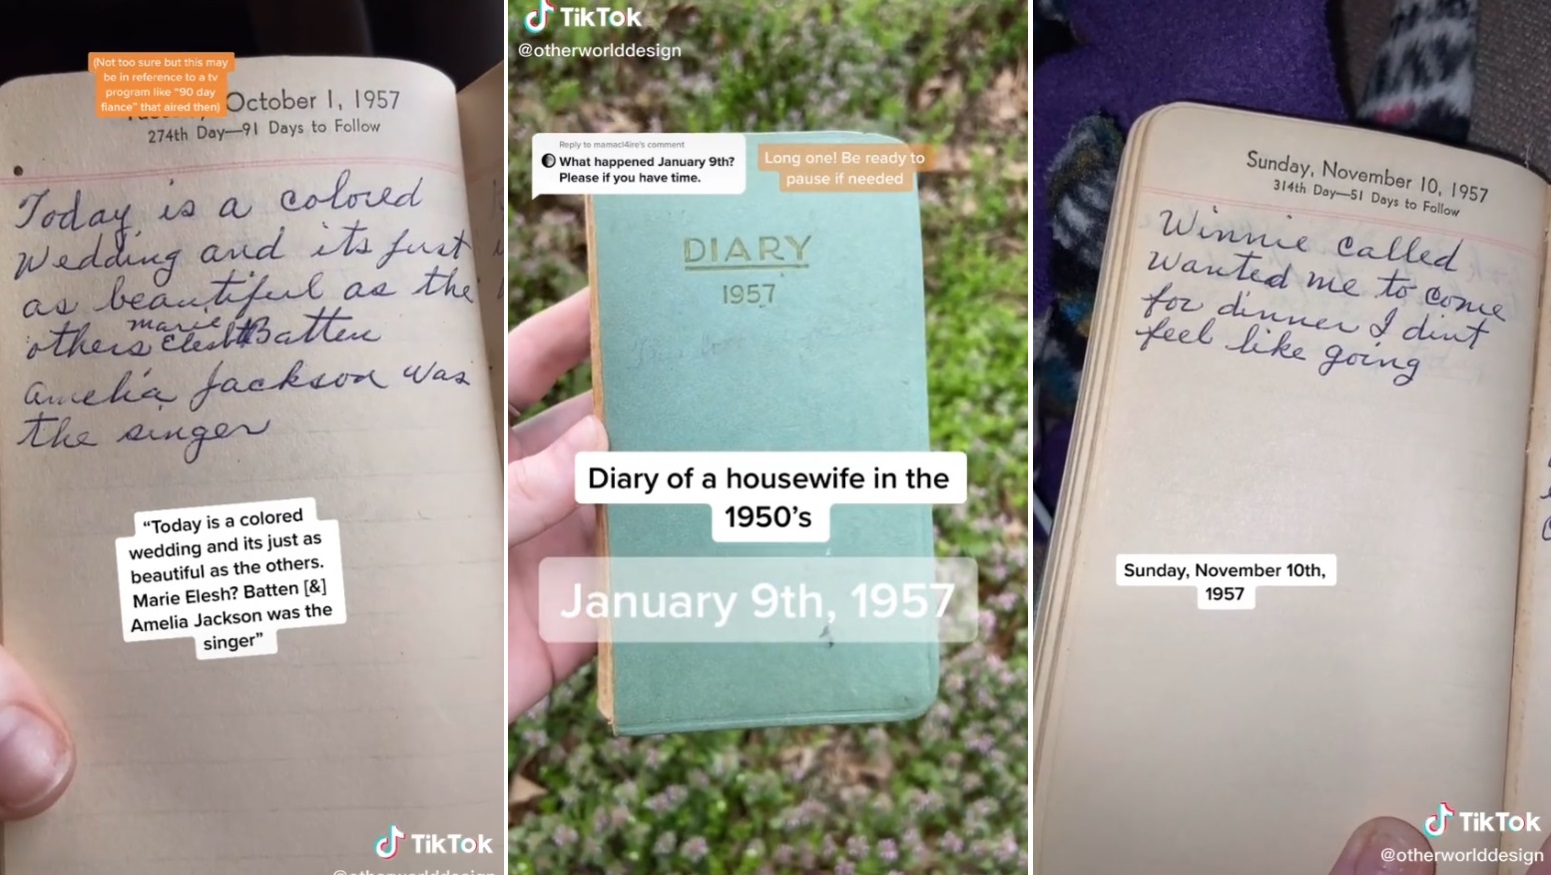 (Not too sure but this may
be in reference to a tv
program like "90 day
fiance" that aired then)
October 1, 1957
274th Day—91 Days to Follow
Today is a colored
wedding and its just
as beautiful as the
others marie Batten
Amelia Jackson was
the singer
"Today is a colored
wedding and its just as
beautiful as the others.
Marie Elesh? Batten [&]
Amelia Jackson was the
singer"
TikTok
@otherworlddesign
TikTok
@otherworlddesign
Reply to mamacl4ire's comment
What happened January 9th?
Please if you have time.
Long one! Be ready to
pause if needed
DIARY
1957
Diary of a housewife in the
1950's
January 9th, 1957
Sunday, November 10, 1957
314th Day—51 Days to Follow
Winnie called
wanted me to come
for dinner I dint
feel like going
Sunday, November 10th,
1957
TikTok
@otherworlddesign